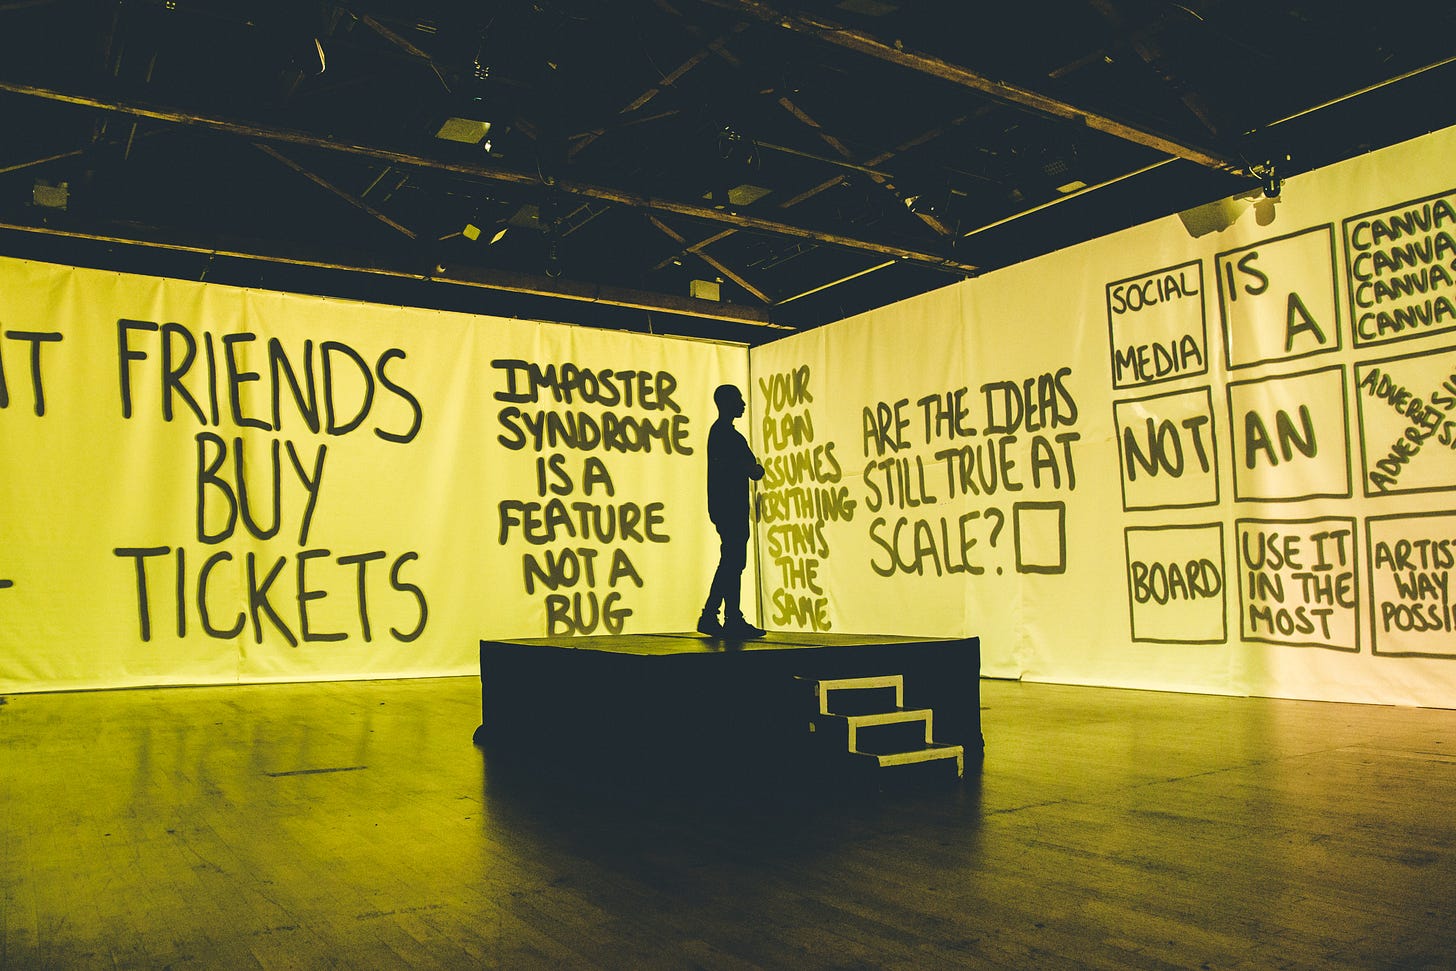 FRIENDS
BUY
TICKETS
IMPOSTER
SYNDROME
IS A
FEATURE
NOT A
BUG
YOUR
PLAN
SSUMES
ERYTHING
STAYS
THE
SAME
ARE THE IDEAS
STILL TRUE AT
SCALE?
SOCIAL
MEDIA
IS
A
CANVA
CANVA
CANVAS
CANVA
NOT
AN
ADVERTIS
ADVERTIS
BOARD
USE IT
IN THE
MOST
ARTIST
WAY
POSSI